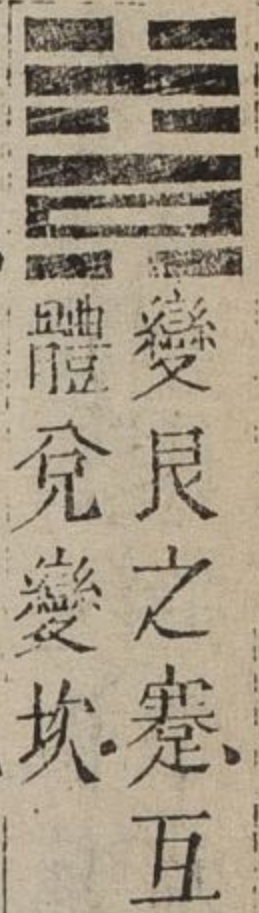 變艮之蹇、互
體兌變坎、